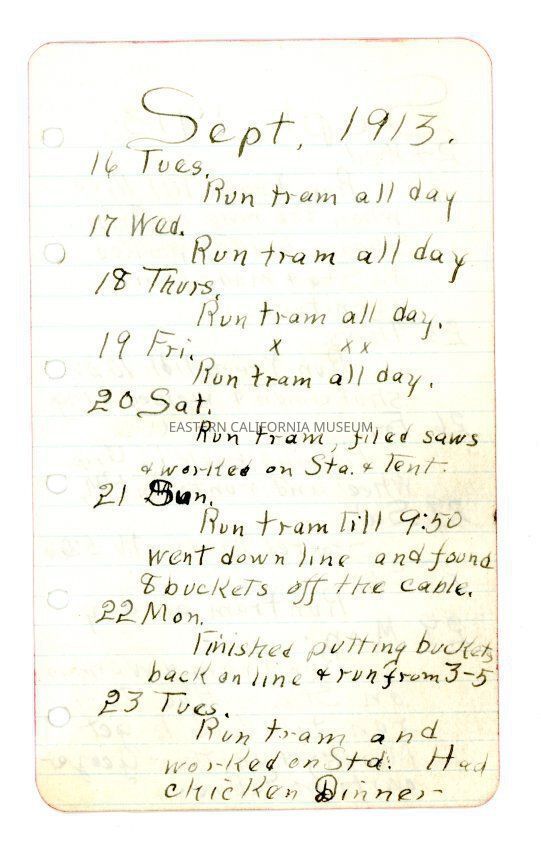 Sept, 1913.
16 Tues.
Run tram all day
17 Wed.
Run tram all day
18 Thurs.
Run tram all day.
19 Fri. x xx
Run tram all day.
20 Sat.
EASTERN CALIFORNIA MUSEUM
Run tram, filed saws
& worked on Sta. & Tent.
21 Sun.
Run tram Till 9:50
went down line and found
8 buckets off the cable.
22 Mon.
Finished putting buckets
back on line & run from 3-5
23 Tues.
Run tram and
worked on Sta. Had
chicken Dinner